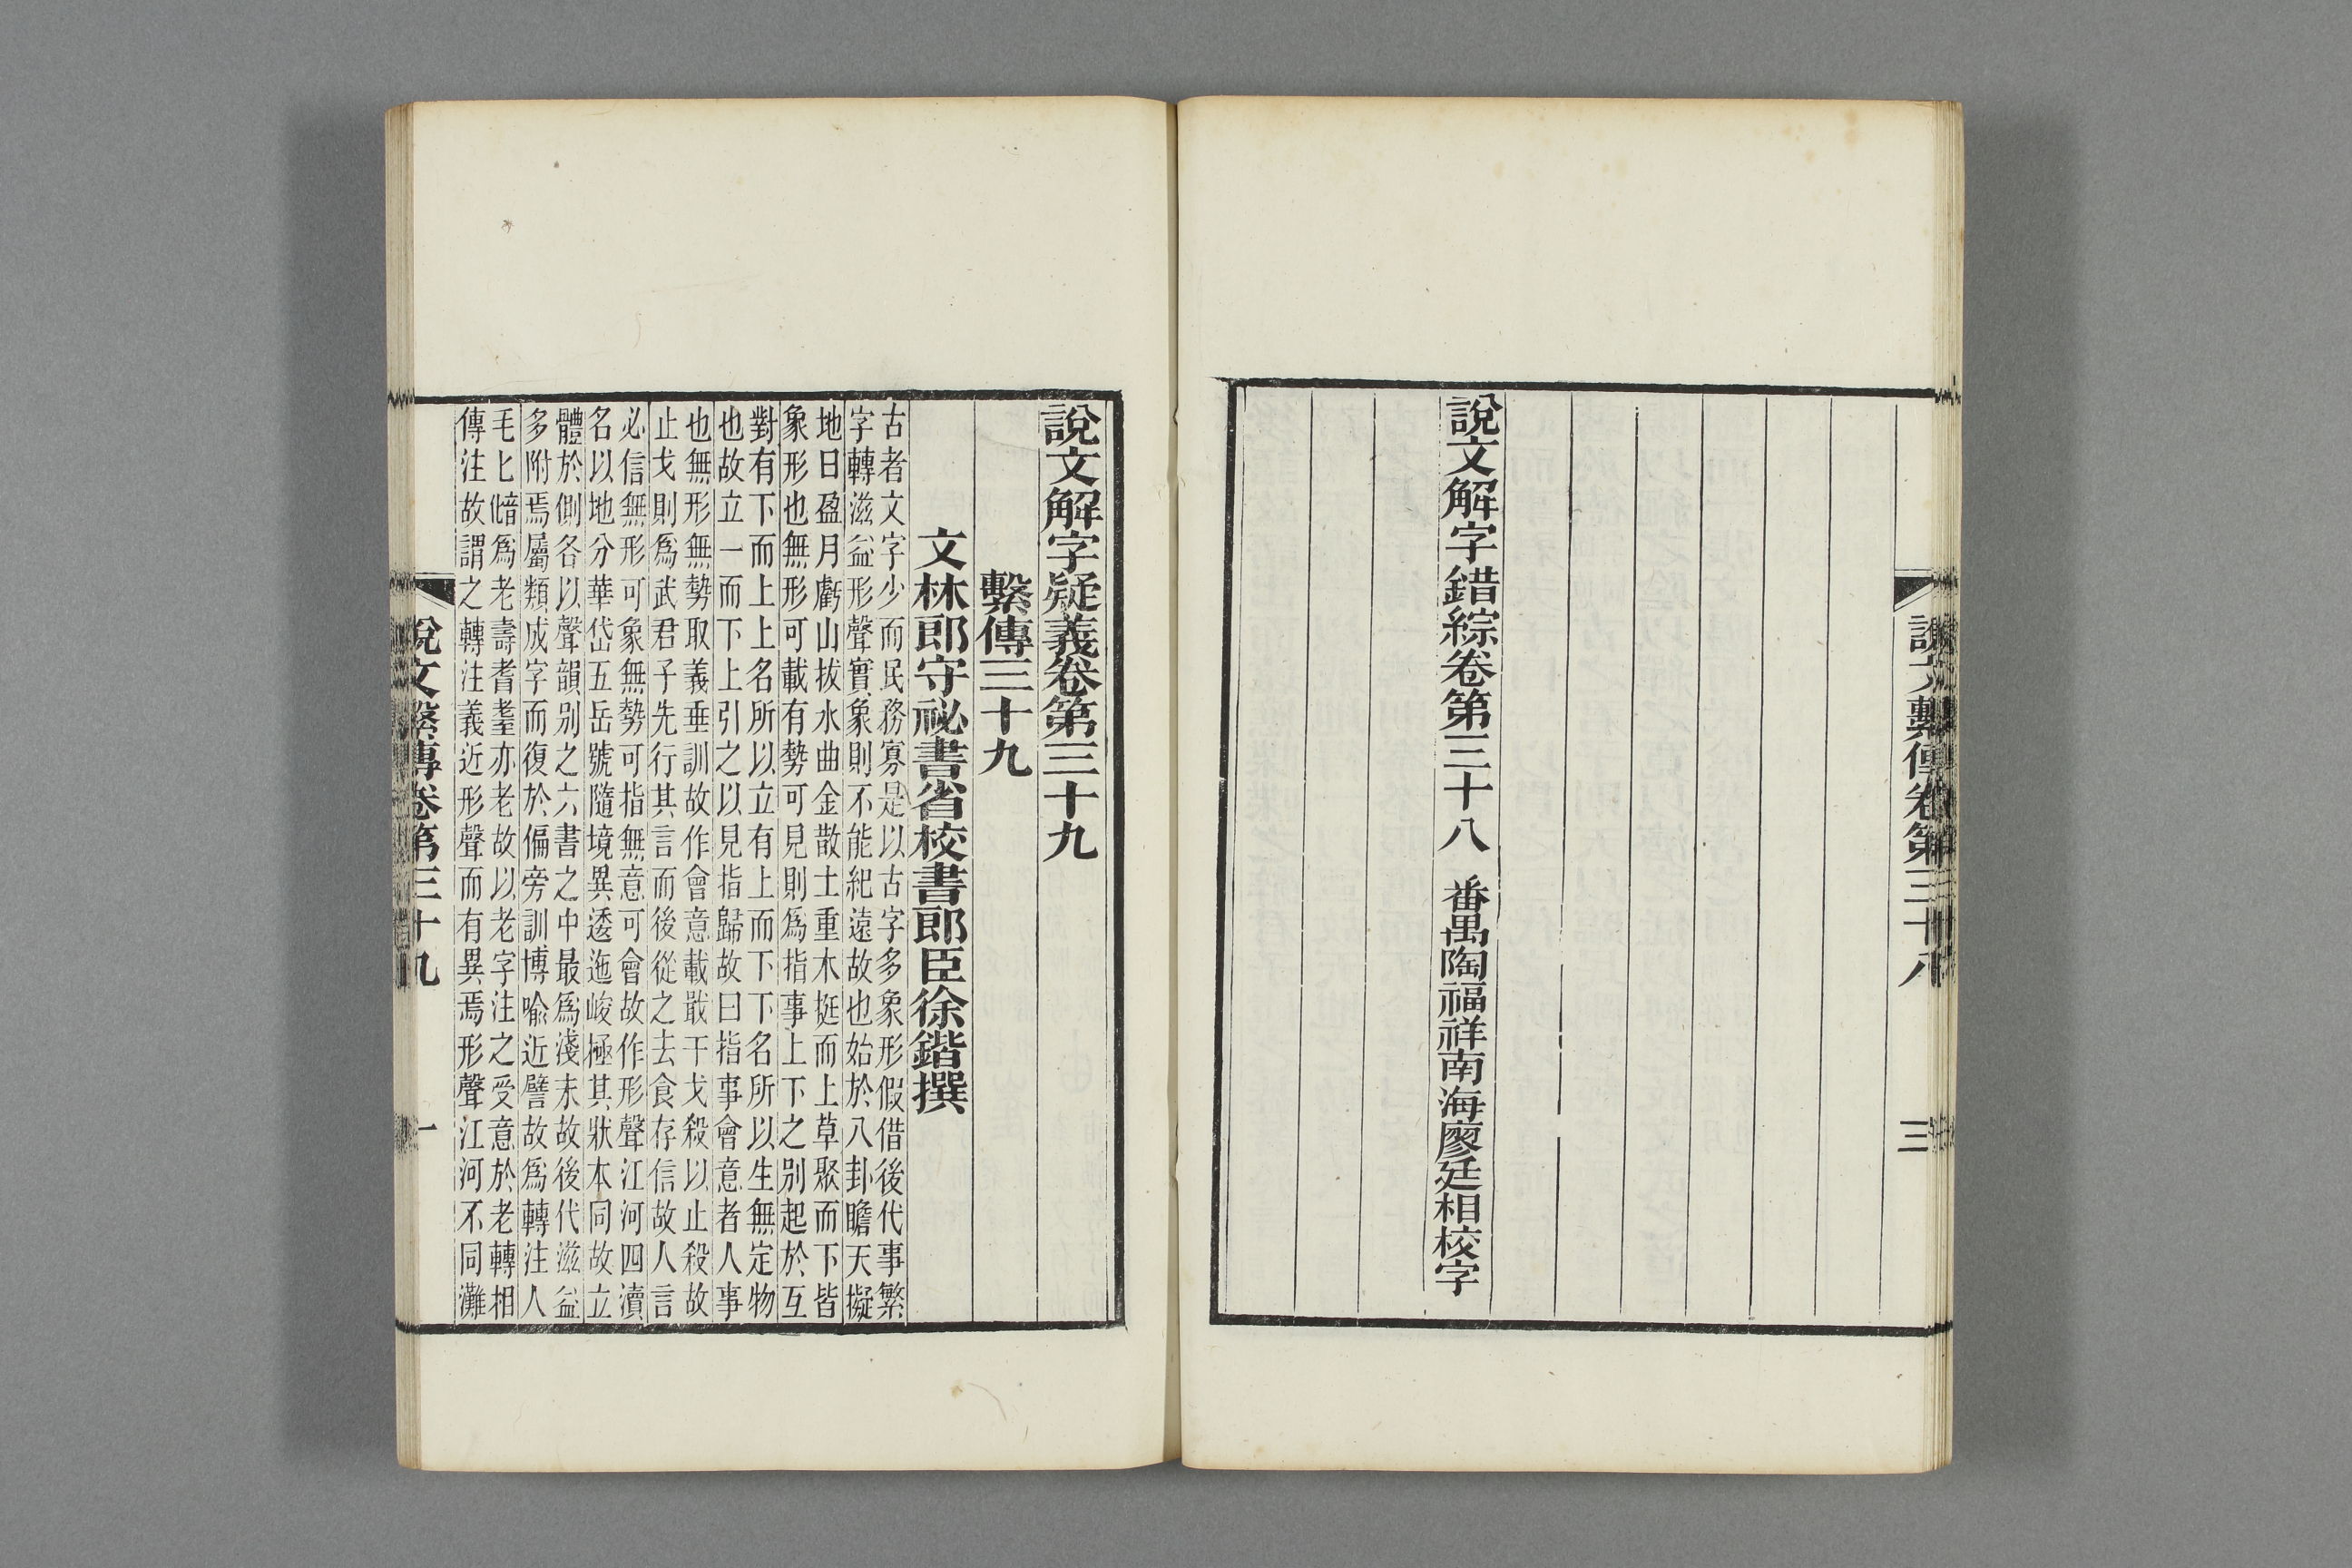 說文繫傳卷第三十八
三
說文解字錯綜卷第三十八　番禺陶福祥南海廖廷相校字
說文解字疑義卷第三十九
繫傳三十九
文林郎守祕書省校書郎臣徐鍇撰
古者文字少而民務寡是以古字多象形假借後代事繁
字轉滋益形聲實象則不能紀遠故也始於八卦瞻天擬
地日盈月虧山拔水曲金散土重木挺而上草聚而下皆
象形也無形可載有勢可見則爲指事上下之别起於互
對有下而上上名所以立有上而下下名所以生無定物
也故立一而下上引之以見指歸故曰指事會意者人事
也無形無勢取義垂訓故作會意載戢干戈殺以止殺故
止戈則爲武君子先行其言而後從之去食存信故人言
必信無形可象無勢可指無意可會故作形聲江河四瀆
名以地分華岱五岳號隨境異逶迤峻極其狀本同故立
體於側各以聲韻别之六書之中最爲淺末故後代滋益
多附焉屬類成字而復於偏旁訓博喻近譬故爲轉注人
毛匕爲老壽耆耋亦老故以老字注之受意於老轉相
傳注故謂之轉注義近形聲而有異焉形聲江河不同灘
說文繫傳卷第三十九
一